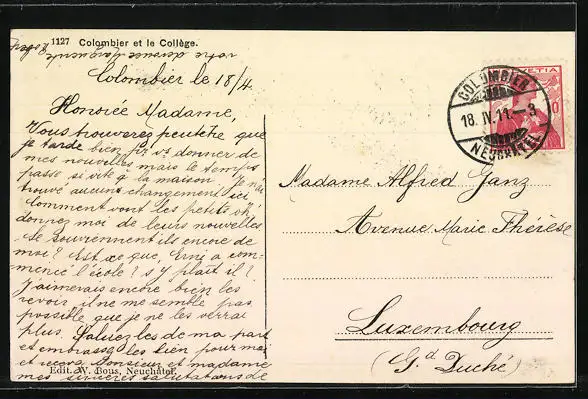 1127 Colombier et le Collège.
votre dévouée Marguerite
Colombier le 18/4
Honorée Madame,
Vous trouverez peutêtre que
je tarde bien pr vs donner de
mes nouvelles mais le temps
passe si vite à la maison. Je n'ai
trouvé aucun changement ici
Comment vont les petits oh!
donnez moi de leurs nouvelles
Se souviennent ils encore de
moi? Est ce que, Erni a com-
mencé l'école? s'y plaît il?
J'aimerais encore bien les
revoir il ne me semble pas
possible que je ne les verrai
plus. Saluez les de ma part
et embrassez les bien pour moi
et recevez Monsieur et madame
mes sincères salutations de
Edit. W. Bous, Neuchâtel.
COLOMBIER
18. IV. 11. - 3
NEUCHÂTEL
HELVETIA
Madame Alfred Ganz
Avenue Marie Thérèse
Luxembourg
(Gd Duché)